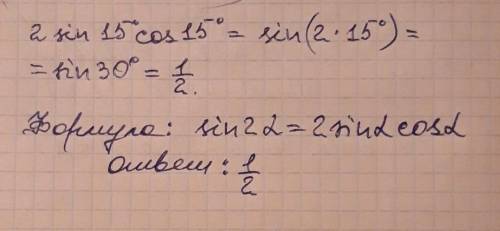 2 sin 15° cos 15° = sin(2·15°) =
= sin 30° = 1/2.
Формула: sin2α = 2sinα cosα
ответ: 1/2